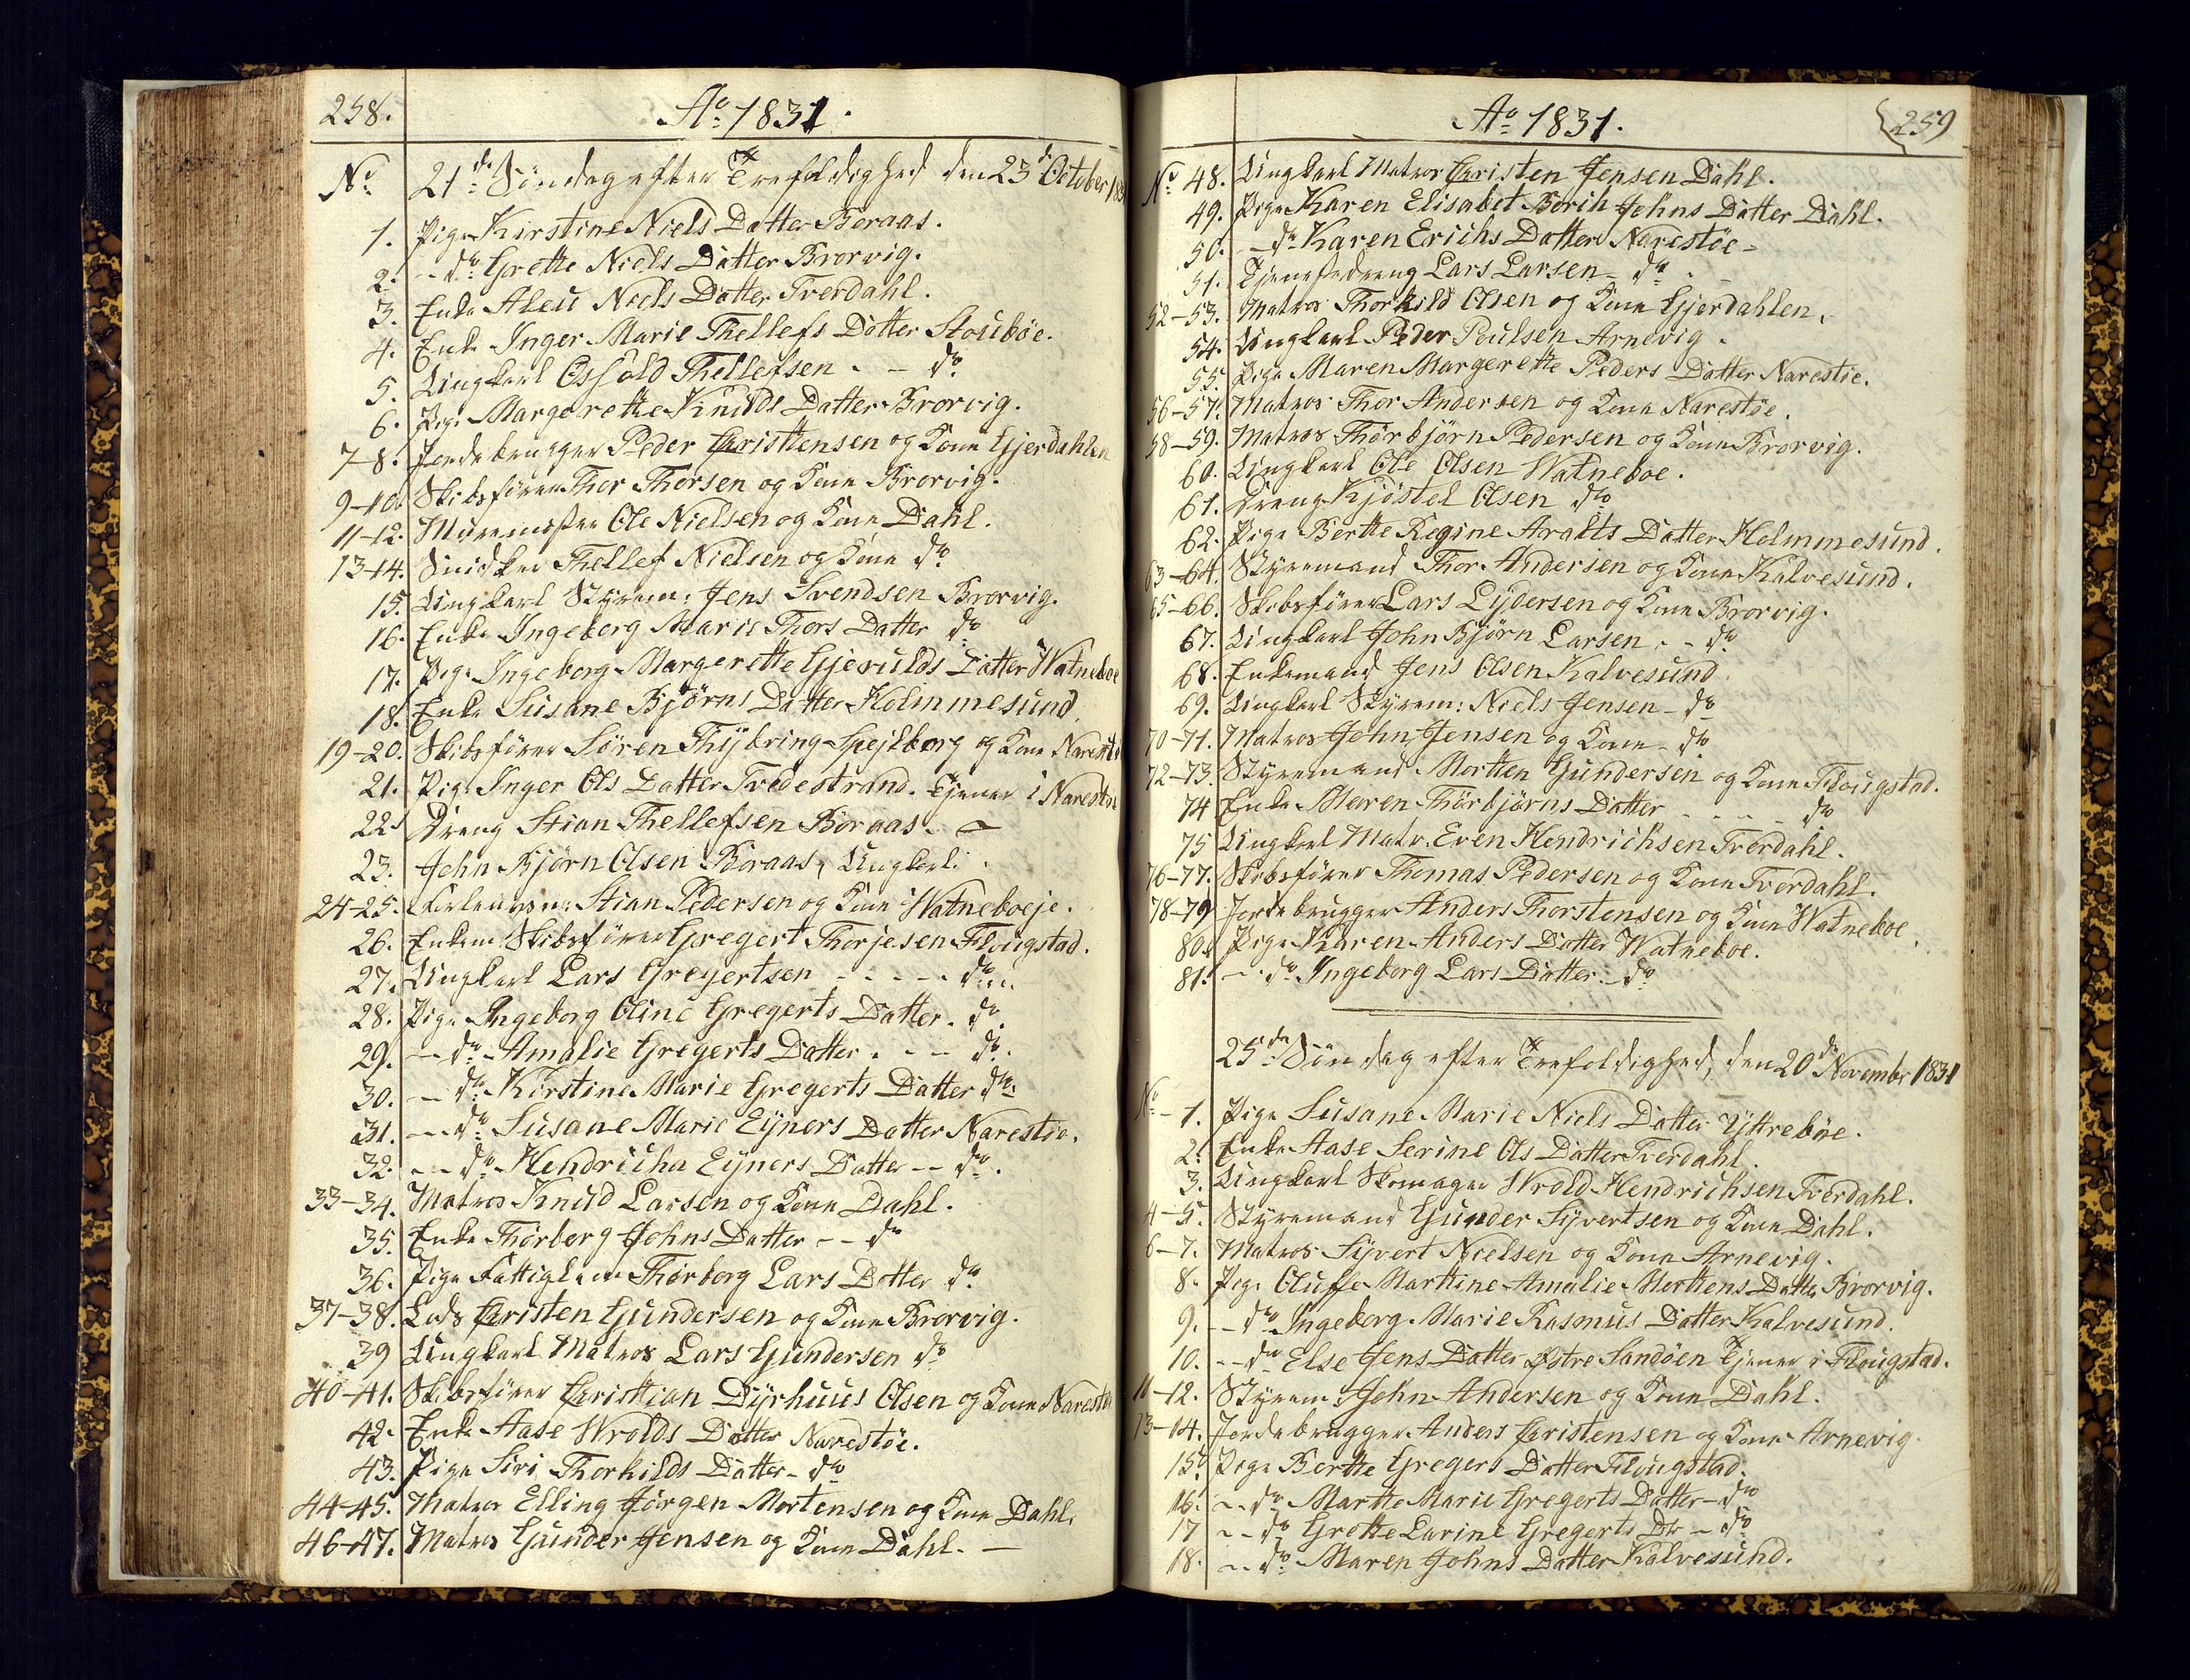 258.
Ao 1831.
No 21de Söndag efter Trefoldighed den 23de October 183
1. Pige Kirstine Niels Datter Boraas.
2. -- do Grette Niels Datter Brorvig.
3. Enke Aleu Niels Datter Tverdahl.
4. Enke Inger Marie Thellefs Datter Stoubøe.
5. Ungkarl Osfold Thellefsen . - do
6. Pige Margerette Knuds Datter Brorvig.
7-8. Jordebrugger Peder Christensen og Kone Gjerdahlen
9-10. Skibsfører Thor Thorsen og Kone Brorvig.
11-12. Muremester Ole Nielsen og Kone Dahl.
13-14. Snidker Thellef Nielsen og Kone do
15. Ungkarl Styrem: Jens Svendsen Brorvig.
16. Enke Ingeborg Marie Thors Datter do
17. Pige Ingeborg Margerette Gjerulds Datter Watneboe
18. Enke Susane Bjørns Datter Holmmesund.
19-20. Skibsfører Søren Thybring Spejlborg og Kone Narestø
21. Pige Inger Ols Datter Tvedestrand. Tjener i Narestøe
22. Dreng Stian Thellefsen Boraas. -
23. John Bjørn Olsen Boraas, Ungkarl.
24-25. Stian Pedersen og Kone Watneboeje.
26. Enkem: Skibsfører Gregert Thorjesen Flougstad.
27. Ungkarl Lars Gregertsen - - - - do
28. Pige Ingeborg Oline Gregerts Datter. do
29. -- do Amalie Gregerts Datter . - - do.
30. -- do Kirstine Marie Gregerts Datter do
31. -- do Susane Marie Eyners Datter Narestøe.
32. -- do Hendricha Eyners Datter -- do.
33-34. Matros Knud Larsen og Kone Dahl.
35. Enke Thorberg Johns Datter -- do
36. Pige Fattiglem Thørborg Lars Datter do
37-38. Lods Christen Gundersen og Kone Brorvig.
39 Ungkarl Matros Lars Gundersen do
40-41. Skibsfører Christian Dyrhuus Olsen og Kone Narestøe
42. Enke Aase Wrolds Datter Narestøe.
43. Pige Siri Thorkilds Datter - do
44-45. Matros Elling Jørgen Mortensen og Kone Dahl.
46-47. Matros Gunder Jensen og Kone Dahl. -
Ao 1831.
259
No 48. Ungkarl Matros Christen Jensen Dahl.
49. Pige Karen Elisabet Borih Johns Datter Dahl.
50. - do Karen Erichs Datter Narestøe -
51. Tjenestedreng Lars Larsen - do.
52-53. Matros Thorkild Olsen og Kone Gjerdahlen.
54. Ungkarl Peder Poulsen Arnevig.
55. Pige Maren Margerette Peders Datter Narestøe.
56-57. Matros Thor Andersen og Kone Narestøe.
58-59. Matros Thørbjørn Pedersen og Kone Brorvig.
60. Ungkarl Ole Olsen Watneboe.
61. Dreng Kjøstel Olsen do
62. Pige Bertte Regine Aralts Datter Holmmesund.
63-64. Styremand Thor Andersen og Kone Kalvesund.
65-66. Skibsfører Lars Lydersen og Kone Brorvig.
67. Ungkarl John Bjørn Larsen . - do
68. Enkemand Jens Olsen Kalvesund.
69. Ungkarl Styrem: Niels Jensen - do
70-71. Matros John Jensen og Kone - do
72-73. Styremand Mortten Gundersen og Kone Flougstad.
74 Enke Maren Thørbjørns Datter - - - - do
75 Ungkarl Matr. Even Hendrichsen Tverdahl.
76-77. Skibsfører Thomas Pedersen og Kone Tverdahl.
78-79 Jordebrugger Anders Thorstensen og Kone Watneboe.
80. Pige Karen Anders Datter Watneboe.
81. -- do Ingeborg Lars Datter - do
25de Søndag efter Trefoldighed, den 20de Novembr 1831
No - 1. Pige Susane Marie Niels Datter Yttrebøe.
2. Enke Aase Serine Ols Datter Tverdahl.
3. Ungkarl Skomager Wrold Hendrichsen Tverdahl.
4-5. Styremand Gunder Syvertsen og Kone Dahl.
6-7. Matros Syvert Nielsen og Kone Arnevig.
8. Pige Oluffe Marttine Amalie Morttens Datter Brorvig.
9. -- do Ingeborg Marie Rasmus Datter Kalvesund.
10. -- do Else Jens Datter Østre Sandøen Tjener i Flougstad.
11-12. Styrem John Andersen og Kone Dahl.
13-14. Jordebrugger Anders Christensen og Kone Arnevig.
15. Pige Bertte Gregers Datter Flougstad.
16. -- do Martte Marie Gregerts Datter - do
17 -- do Grette Larine Gregerts Dtr - do
18. -- do Maren Johns Datter Kalvesund.